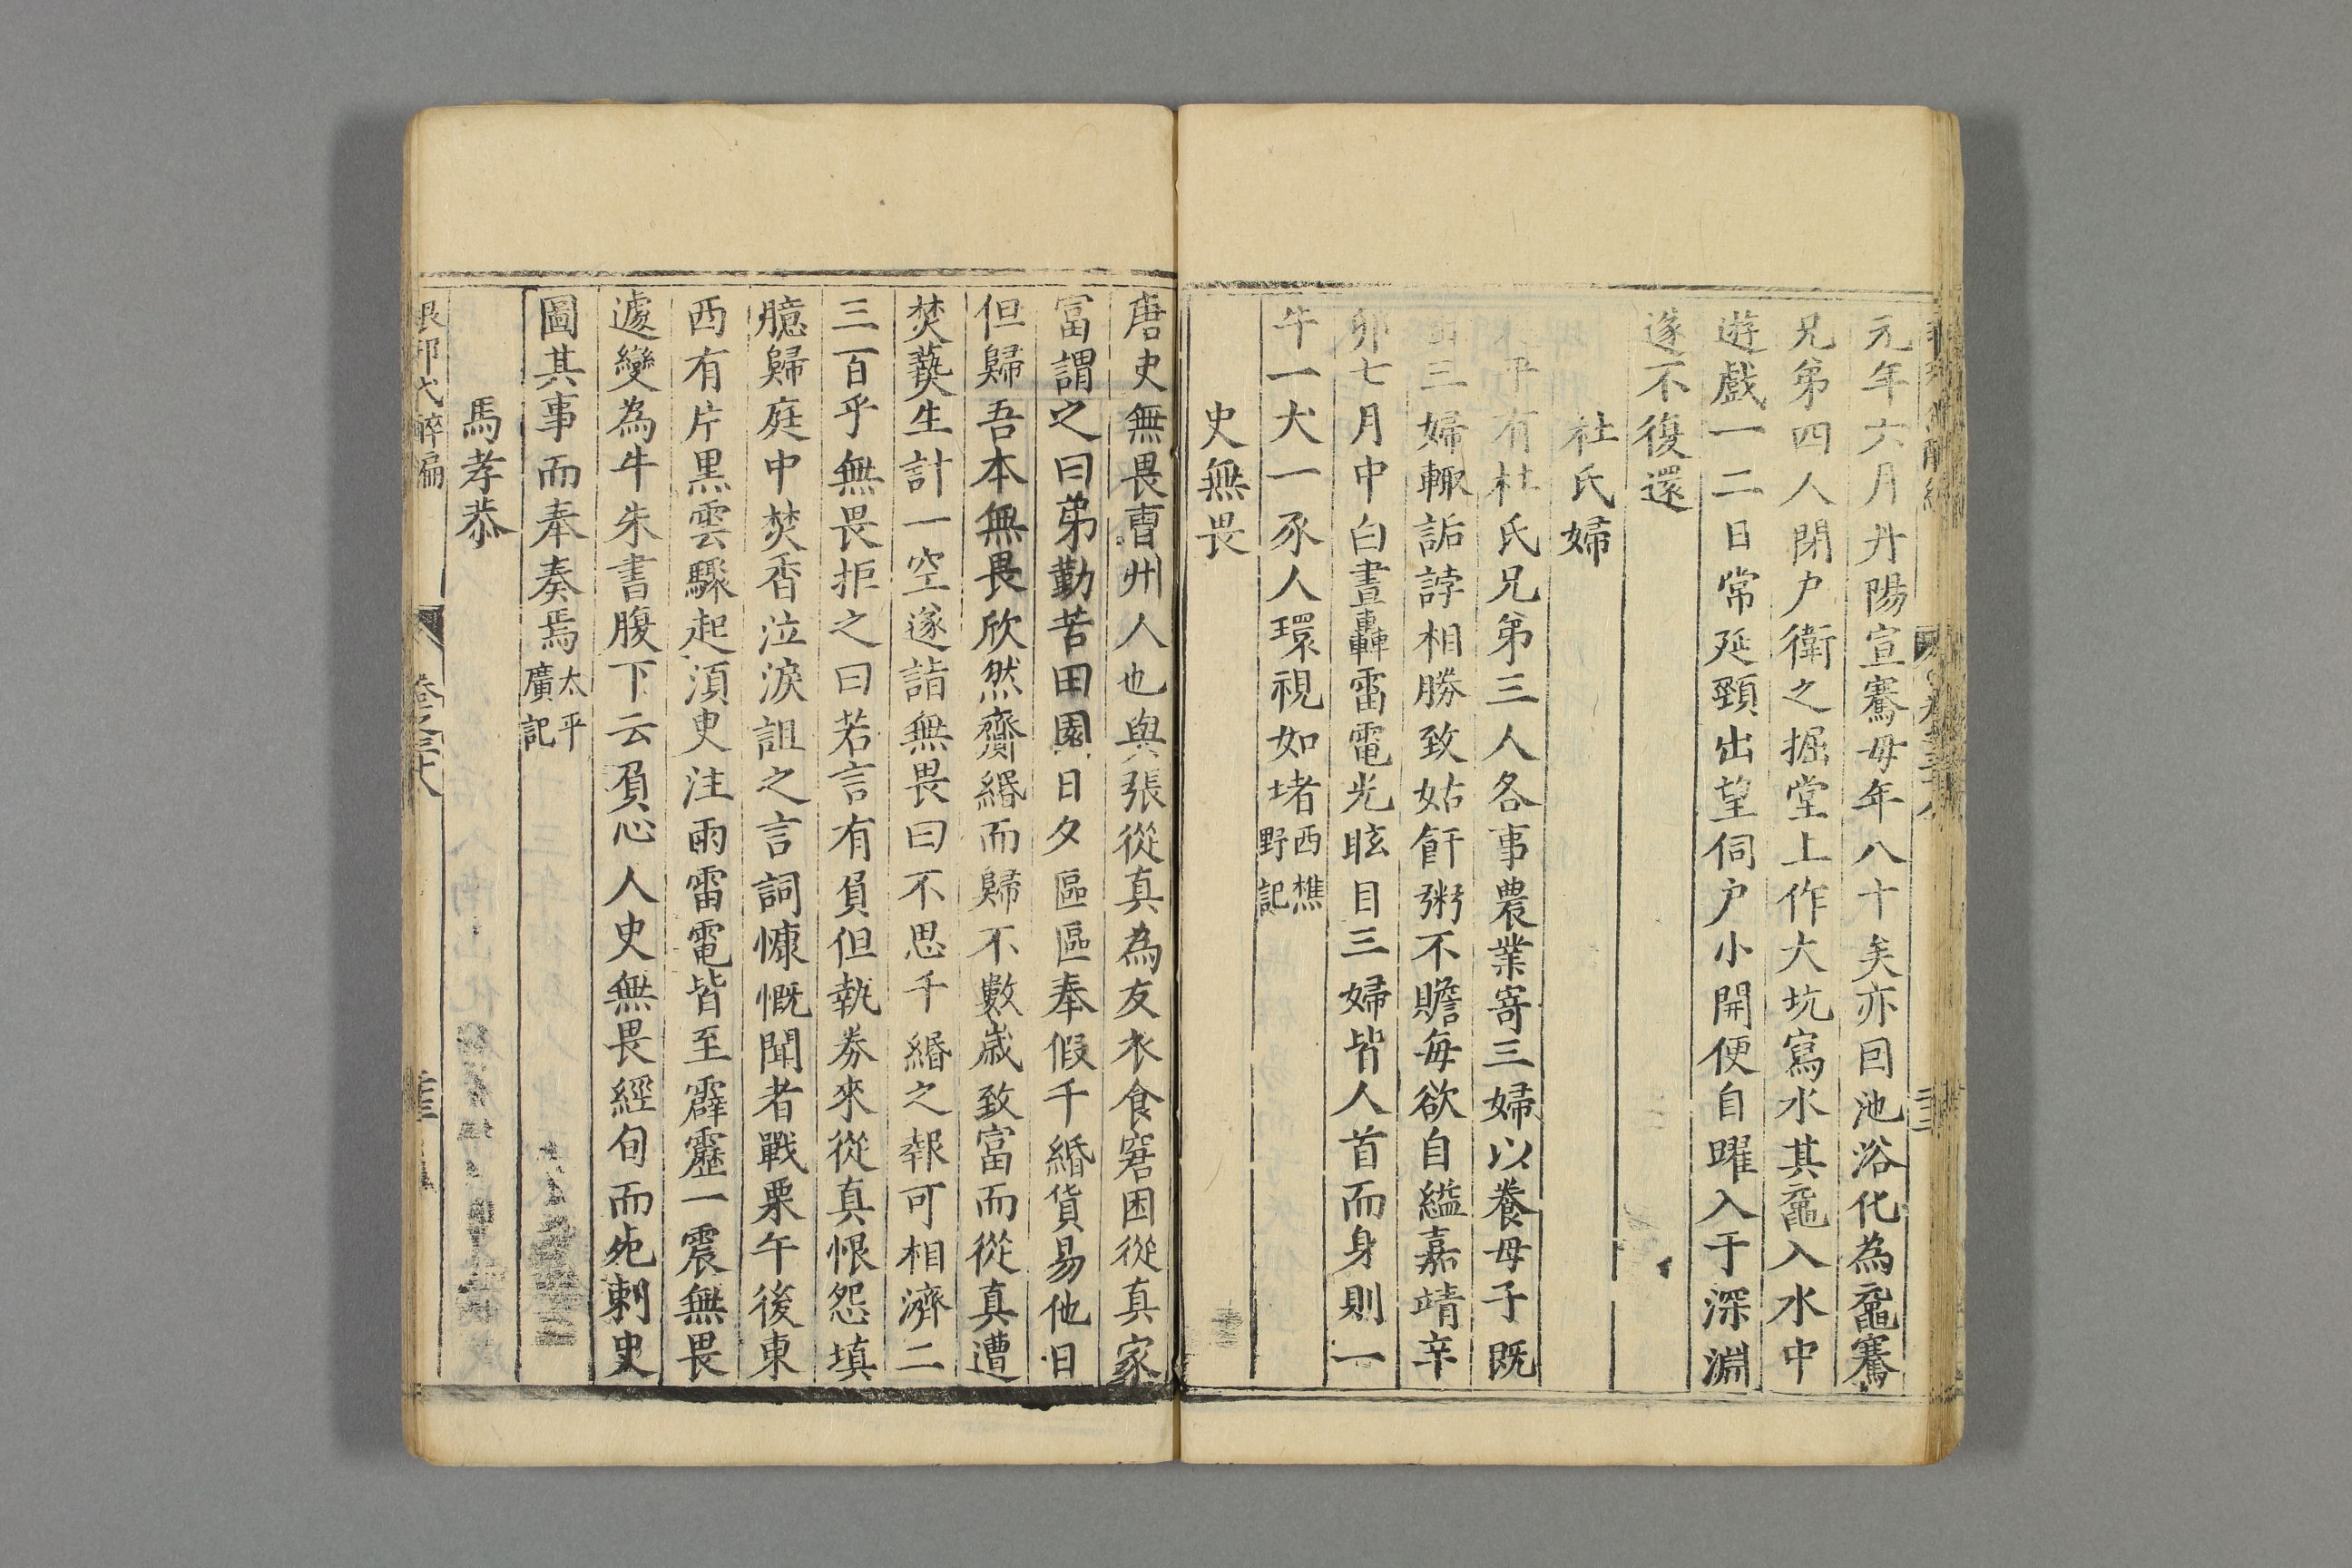 元年六月丹陽宣騫毋年八十矣亦因池浴化為黿騫
兄弟四人閉户衛之掘堂上作大坑寫水其黿入水中
遊戲一二日常延頸出望伺户小開便自躍入于深淵
遂不復還
社氏婦
平有杜氏兄弟三人各事農業寄三婦以養母子既
三婦輙詬誖相勝致姑飦粥不贍每欲自縊嘉靖辛
卯七月中白晝轟雷電光眩目三婦皆人首而身則一
牛一犬一豕人環視如堵西樵野記
史無畏
唐史無畏曹州人也與張從真為友衣食窘困從真家
富謂之曰弟勤苦田園日夕區區奉假千緡貨易他日
但歸吾本無畏欣然齎緡而歸不數歲致富而從真遭
焚爇生計一空遂詣無畏曰不思千緡之報可相濟二
三百乎無畏拒之曰若言有負但執券來從真恨怨填
臆歸庭中焚香泣淚詛之言詞慷慨聞者戰栗午後東
西有片黑雲驟起湏臾注雨雷電皆至霹靂一震無畏
遽變為牛朱書腹下云負心人史無畏經旬而死刺史
圖其事而奉奏焉太平廣記
馬孝恭
琅邪代醉編 卷之三十八